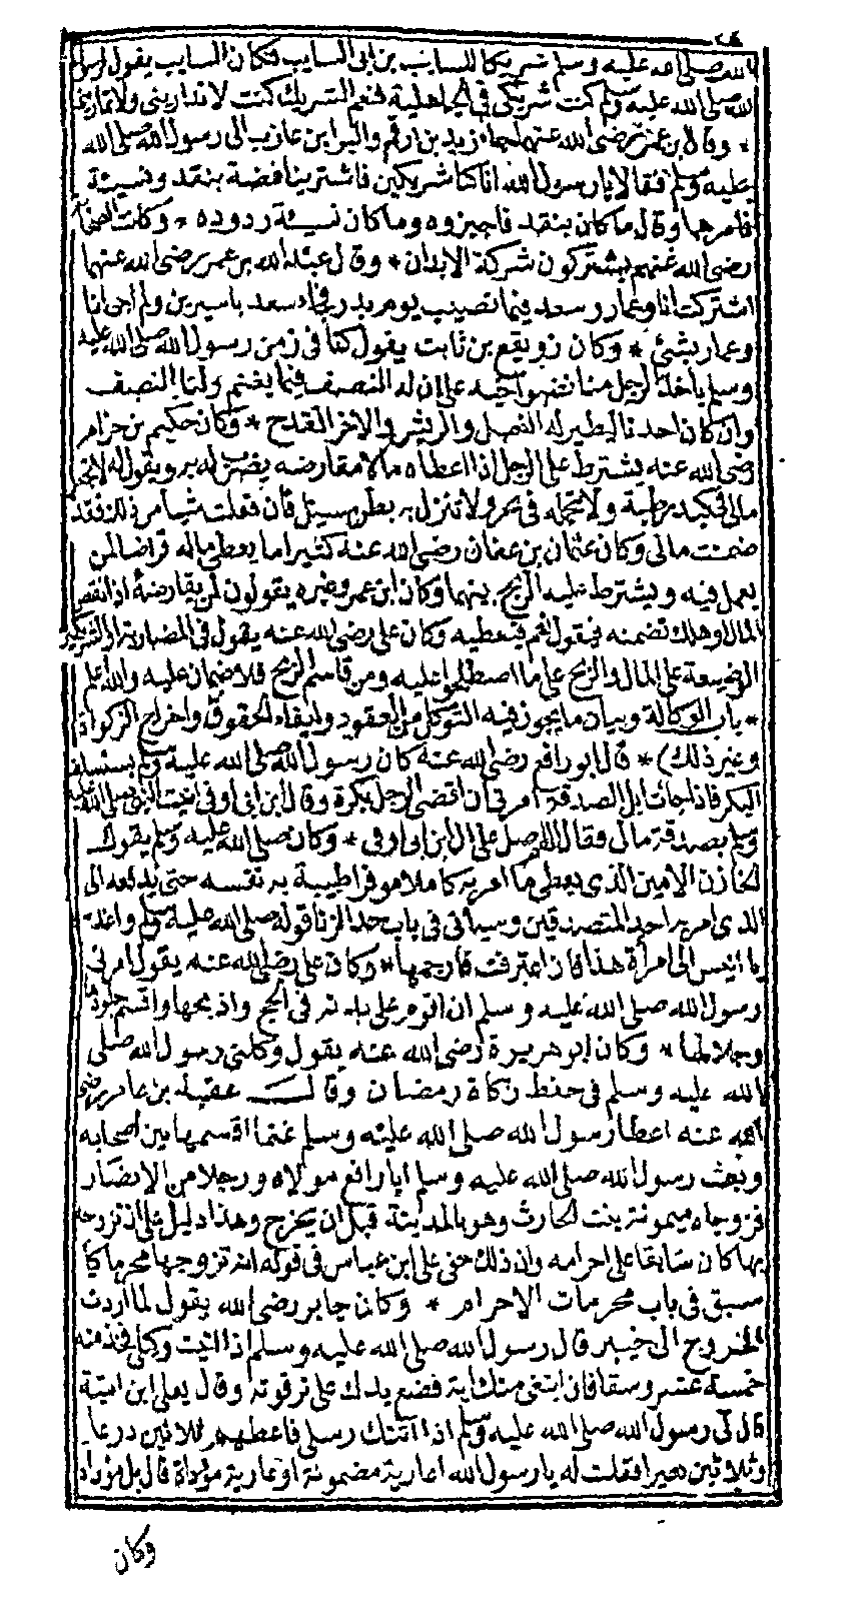 ٢٤
الله صلى الله عليه وسلم شريكا للسايب بن ابى السايب فكان السايب يقول لرسول
الله صلى الله عليه وسلم كنت شريكى فى الجاهلية فنعم الشريك كنت لا تدارينى ولا تمارينى
* وقال ابن عمر رضى الله عنهما جاء زيد بن ارقم والبرا بن عازب الى رسول الله صلى الله
عليه وسلم فقالا يا رسول الله انا كنا شريكين فاشترينا فضة بنقد ونسيئة
فامرهما وقال ما كان بنقد فاجيزوه وما كان نسيئة ردوده * وكانت الصحابة
رضى الله عنهم يشتركون شركة الابدان * وقال عبد الله بن عمر رضى الله عنهما
اشتركت انا وعمار وسعد فيما نصيب يوم بدر فجاء سعد باسيرين ولم اجى انا
وعمار بشئ * وكان رويفع بن ثابت يقول كنا فى زمن رسول الله صلى الله عليه
وسلم ياخذ الرجل منا نضو اخيه على ان له النصف فيما يغنم ولنا النصف
وان كان احدنا ليطير له النصل والريش والاخر القدح * وكان حكيم بن حزام
رضى الله عنه يشترط على الرجل اذا اعطاه مالا مقارضه يضرب له به ويقول له لا تجعل
مالى فى كبد رطبة ولا تحمله فى بحر ولا تنزل به بطن مسيل فان فعلت شيأ من ذلك فقد
ضمنت مالى وكان عثمان بن عفان رضى الله عنه كثيرا ما يعطى ماله قراضا لمن
يعمل فيه ويشترط عليه الربح بينهما وكان ابن عمر وغيره يقولون لمن يقارضه اذا نقص
المال او هلك تضمنه فيقول نعم فيعطيه وكان على رضى الله عنه يقول فى المضاربة او الشريكين
الوضيعة على المال والربح على ما اصطلحوا عليه ومن قاسم الربح فلا ضمان عليه والله اعلم
* باب الوكالة وبيان ما يجوز فيه التوكل من العقود وايفاء الحقوق واخراج الزكوات
وغير ذلك) * قال ابو رافع رضى الله عنه كان رسول الله صلى الله عليه وسلم يستسلف
البكر فاذا جات ابل الصدقة امرنى ان اقضى الرجل بكره وقال ابن ابى اوفى اتيت النبى صلى الله عليه
وسلم بصدقة مالى فقال اللهم صل على ال ابى اوفى * وكان صلى الله عليه وسلم يقول
الخازن الامين الذى يعطى ما امر به كاملا موفرا طيبة به نفسه حتى يدفعه الى
الذى امر به احد المتصدقين وسياتى فى باب حد الزنا قوله صلى الله عليه وسلم واغد
يا انيس الى امرأة هذا فان اعترفت فارجمها * وكان على رضى الله عنه يقول امرنى
رسول الله صلى الله عليه وسلم ان اقوم على بدنه فى الحج واذبحها واقسم جلودها
وجلالها * وكان ابو هريرة رضى الله عنه يقول وكلنى رسول الله صلى
الله عليه وسلم فى حفظ زكاة رمضان وقال عقبة بن عامر رضى
الله عنه اعطا رسول الله صلى الله عليه وسلم غنما اقسمها بين اصحابه
وبعث رسول الله صلى الله عليه وسلم ابا رافع مولاه ورجلا من الانصار
فزوجاه ميمونة بنت الحارث وهو بالمدينة قبل ان يخرج وهذا دليل على ان تزوجه
بها كان سابقا على احرامه وان ذلك خفى على ابن عباس فى قوله انه تزوجها محرما كما
سبق فى باب محرمات الاحرام * وكان جابر رضى الله يقول لما اردت
الخروج الى خيبر قال رسول الله صلى الله عليه وسلم اذا اتيت وكيلى فخذ منه
خمسة عشر وسقا فان ابتغى منك اية فضع يدك على ترقوته وقال يعلى ابن امية
قال لى رسول الله صلى الله عليه وسلم اذا اتتك رسلى فاعطهم ثلاثين درعا
وثلاثين بعيرا فقلت له يا رسول الله اعارية مضمونة او عارية مؤداة قال بل مؤداة
وكان